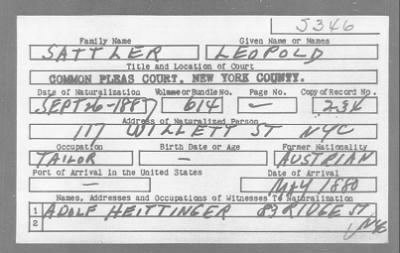 S346
Family Name Given Name or Names
SATTLER LEOPOLD
Title and Location of Court
COMMON PLEAS COURT, NEW YORK COUNTY.
Date of Naturalization Volume or Bundle No. Page No. Copy of Record No.
SEPT 26-1887 614 — 234
Address of Naturalized Person
117 WILLETT ST NYC
Occupation Birth Date or Age Former Nationality
TAILOR — AUSTRIAN
Port of Arrival in the United States Date of Arrival
— MAY 1880
Names, Addresses and Occupations of Witnesses To Naturalization
1 ADOLF HEITTINGER 83 RIDGE ST
2 NYC